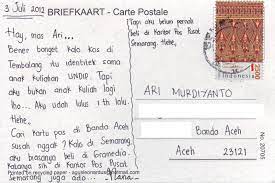 3 Juli 2012
BRIEFKAART - Carte Postale
Hay, mas Ari...
Bener banget kalo kos di
Tembalang itu identitek sama
anak kuliahan UNDIP. Tapi
aku bukan anak kuliah lho,
lho.. Aku udah lulus 1 th lalu.
Hehe.
Cari kartu pos di Banda Aceh
susah nggak? Kalo di Semarang
aku biasanya beli di Gramedia.
Katanya sih di Kantor Pos Pusat
Semarang juga ada.
Tapi aku belum pernah
beli di Kantor Pos Pusat
Semarang. Hehe.
Indonesia
ARI MURDIYANTO
Banda Aceh
Aceh 23121
Printed on recycled paper